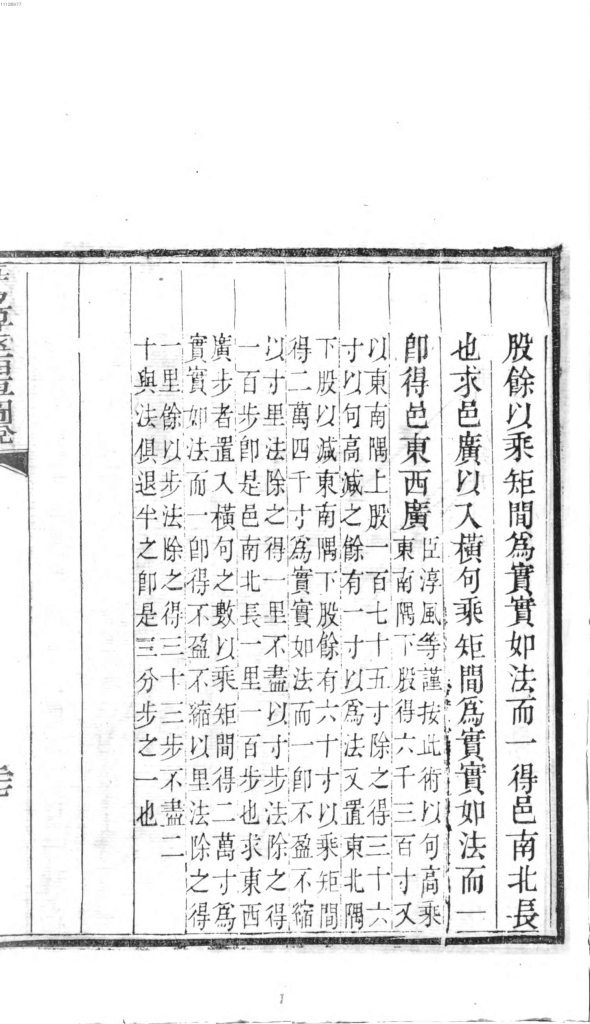 股餘以乘矩間爲實實如法而一得邑南北長
也求邑廣以入横句乘矩間爲實實如法而一
卽得邑東西廣
臣淳風等謹按此術以句高乘
東南隅下股得六千三百寸又
以東南隅上股一百七十五寸除之得三十六
寸以句高減之餘有一寸以爲法又置東北隅
下股以減東南隅下股餘有六十寸以乘矩間
得二萬四千寸爲實實如法而一卽不盈不縮
以寸里法除之得一里不盡以寸步法除之得
一百步卽是邑南北長一里一百步也求東西
廣步者置入横句之數以乘矩間得二萬寸爲
實實如法而一卽得不盈不縮以里法除之得
一里餘以步法除之得三十三步不盡二
十與法俱退半之卽是三分步之一也
1